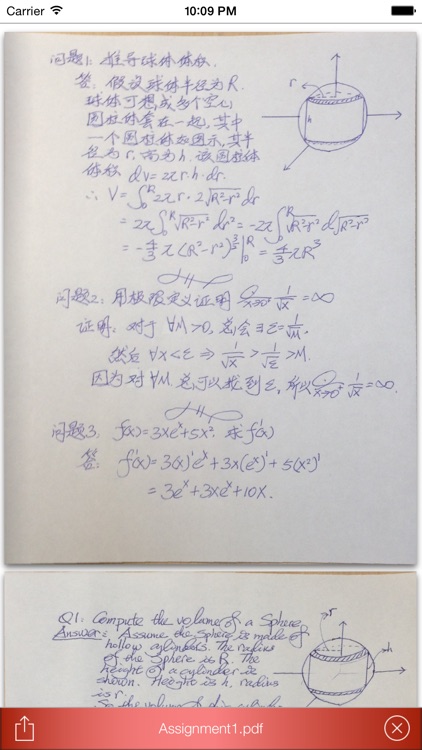 Carrier
10:09 PM
问题1: 推导球体体积.
答: 假设球体半径为R.
球体可想成多个空心
圆柱体套在一起, 其中
一个圆柱体如图示, 其半
径为r, 高为h. 该圆柱体
体积 dv=2πr·h·dr.
r
h
∴ V=∫₀ᴿ2πr·2√(R²-r²)dr
=2π∫₀ᴿ√(R²-r²)dr²=-2π∫₀ᴿ√(R²-r²)d√(R²-r²)
=-4/3π(R²-r²)^(3/2)|₀ᴿ=4/3πR³
问题2: 用极限定义证明 x→0 1/√x=∞
证明: 对于∀M>0, 总会∃ε=1/√M.
然后 ∀x<ε ⇒ 1/√x>1/√ε>M.
因为对∀M总可以找到ε, 所以 x→0⁺ 1/√x=∞.
问题3, f(x)=3xeˣ+5x². 求f'(x)
答: f'(x)=3(x)'eˣ+3x(eˣ)'+5(x²)'
=3eˣ+3xeˣ+10x.
Q1: Compute the volume of a Sphere
Answer: Assume the Sphere is made of
hollow cylinders. The radius
of the Sphere is R. The
height of a cylinder is
shown. Height is h, radius
is r.
r
h
Assignment1.pdf